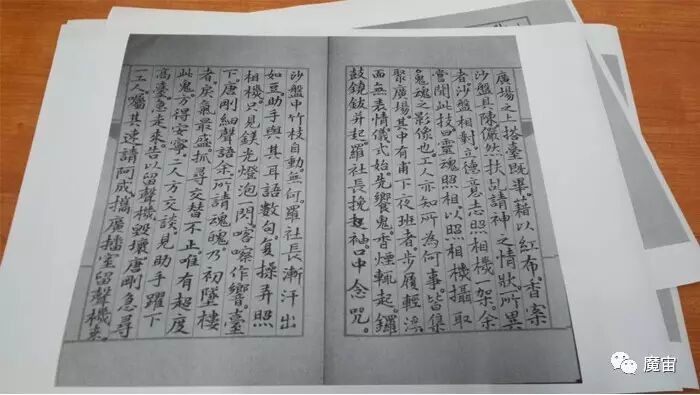 廣場之上搭臺既畢。藉以紅布。香案
沙盤具陳。儼然扶乩請神之情狀。所異
者沙盤相對立德意志照相機一架。余
嘗聞此技曰靈魂照相以照相機攝取
鬼魂之影像也。工人亦知所為何事。皆集
聚廣場。其中有甫下夜班者。步履輕浮
面無表情。儀式始。先饗鬼。香煙輒起。鑼
鼓鐃鈸并起。羅社長挽起袖。口中念咒。
沙盤中竹枝自動。無何。羅社長漸汗出
如豆。助手與其耳語數句。复操弄照
相機。只見鎂光燈泡一閃。喀嚓作響。臺
下。唐剛細聲語余。所請魂魄乃初墜樓
者。戾氣最盛。抓尋交替不止。唯有超度
此鬼。方得安寧。二人方交談。見助手躍下
高臺。急來。告以留聲機毀壞。唐剛急尋
一工人。囑其速請阿成。擋廣播室留聲機來。
魔宙